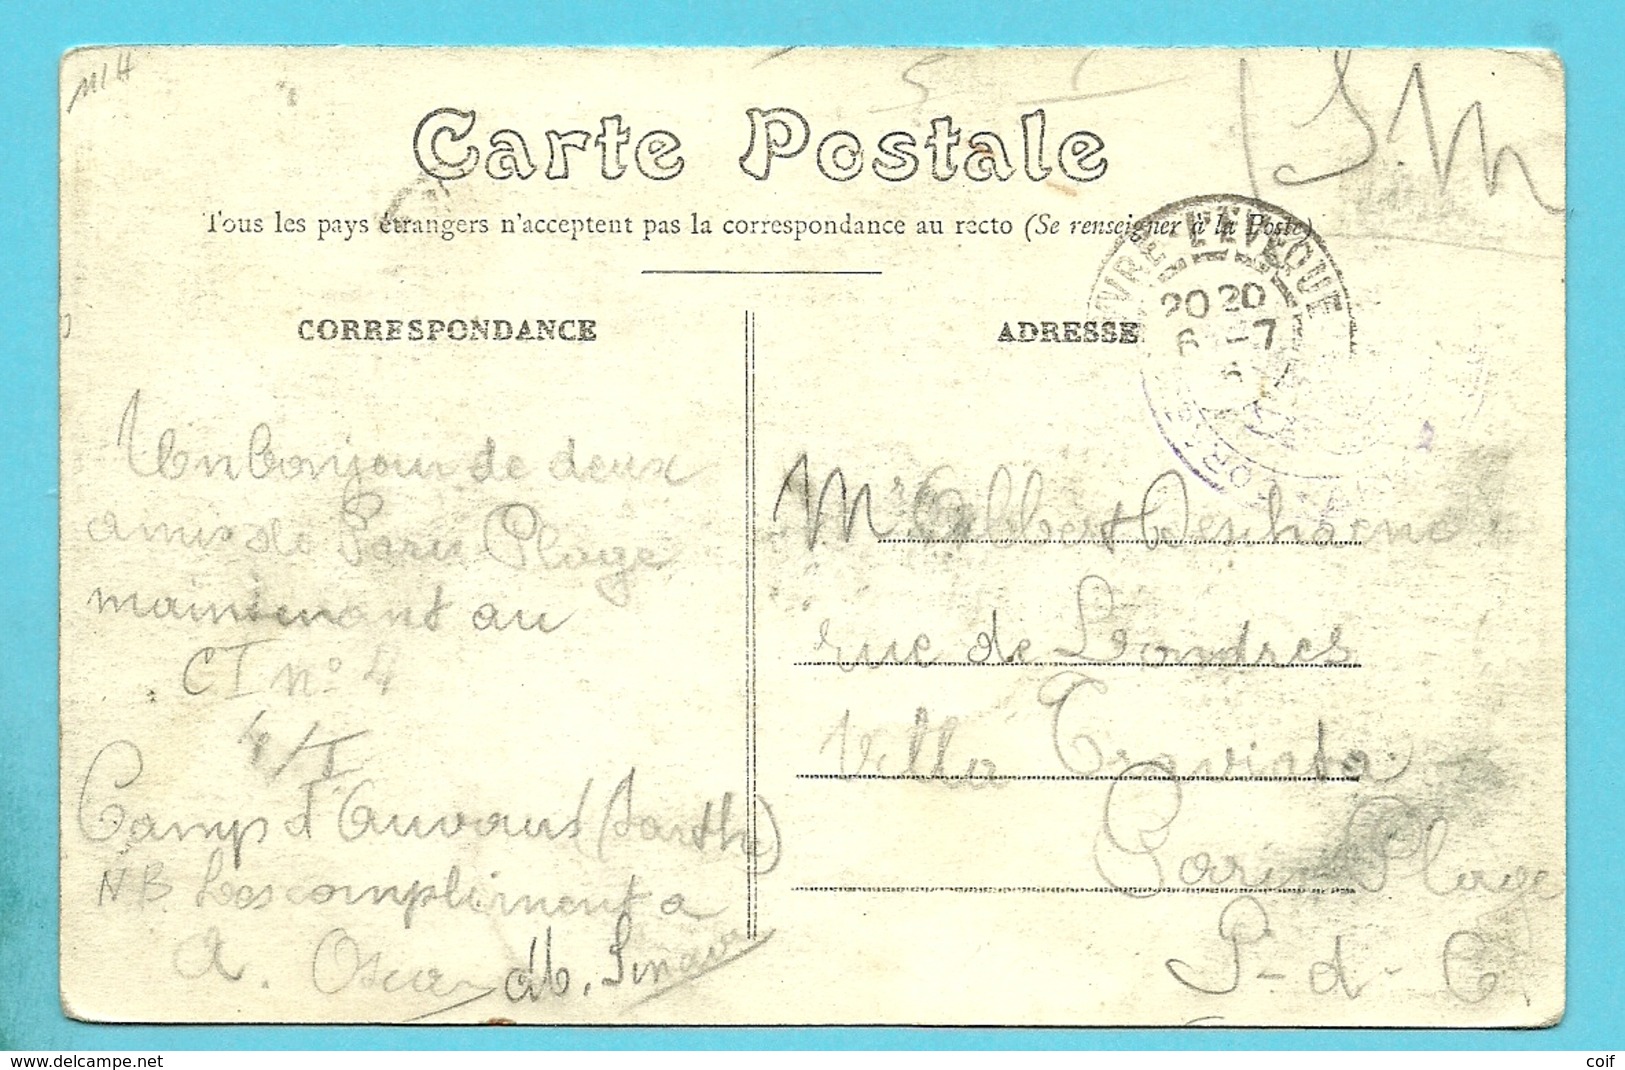 M H
S M
Carte Postale
Tous les pays étrangers n'acceptent pas la correspondance au recto (Se renseigner à la Poste)
YVRÉ-L'EVEQUE
20 20
6 -7
CORRESPONDANCE
ADRESSE
Un bonjour de deux
amis de Paris Plage
maintenant au
C I n° 4
4/I
Camp d'Auvours (Sarthe)
N B. Les compliment a
A. Oscar
Mr Albert
rue de Londres
Villa Traviata
Paris-Plage
P-d-C.
www.delcampe.net
coif